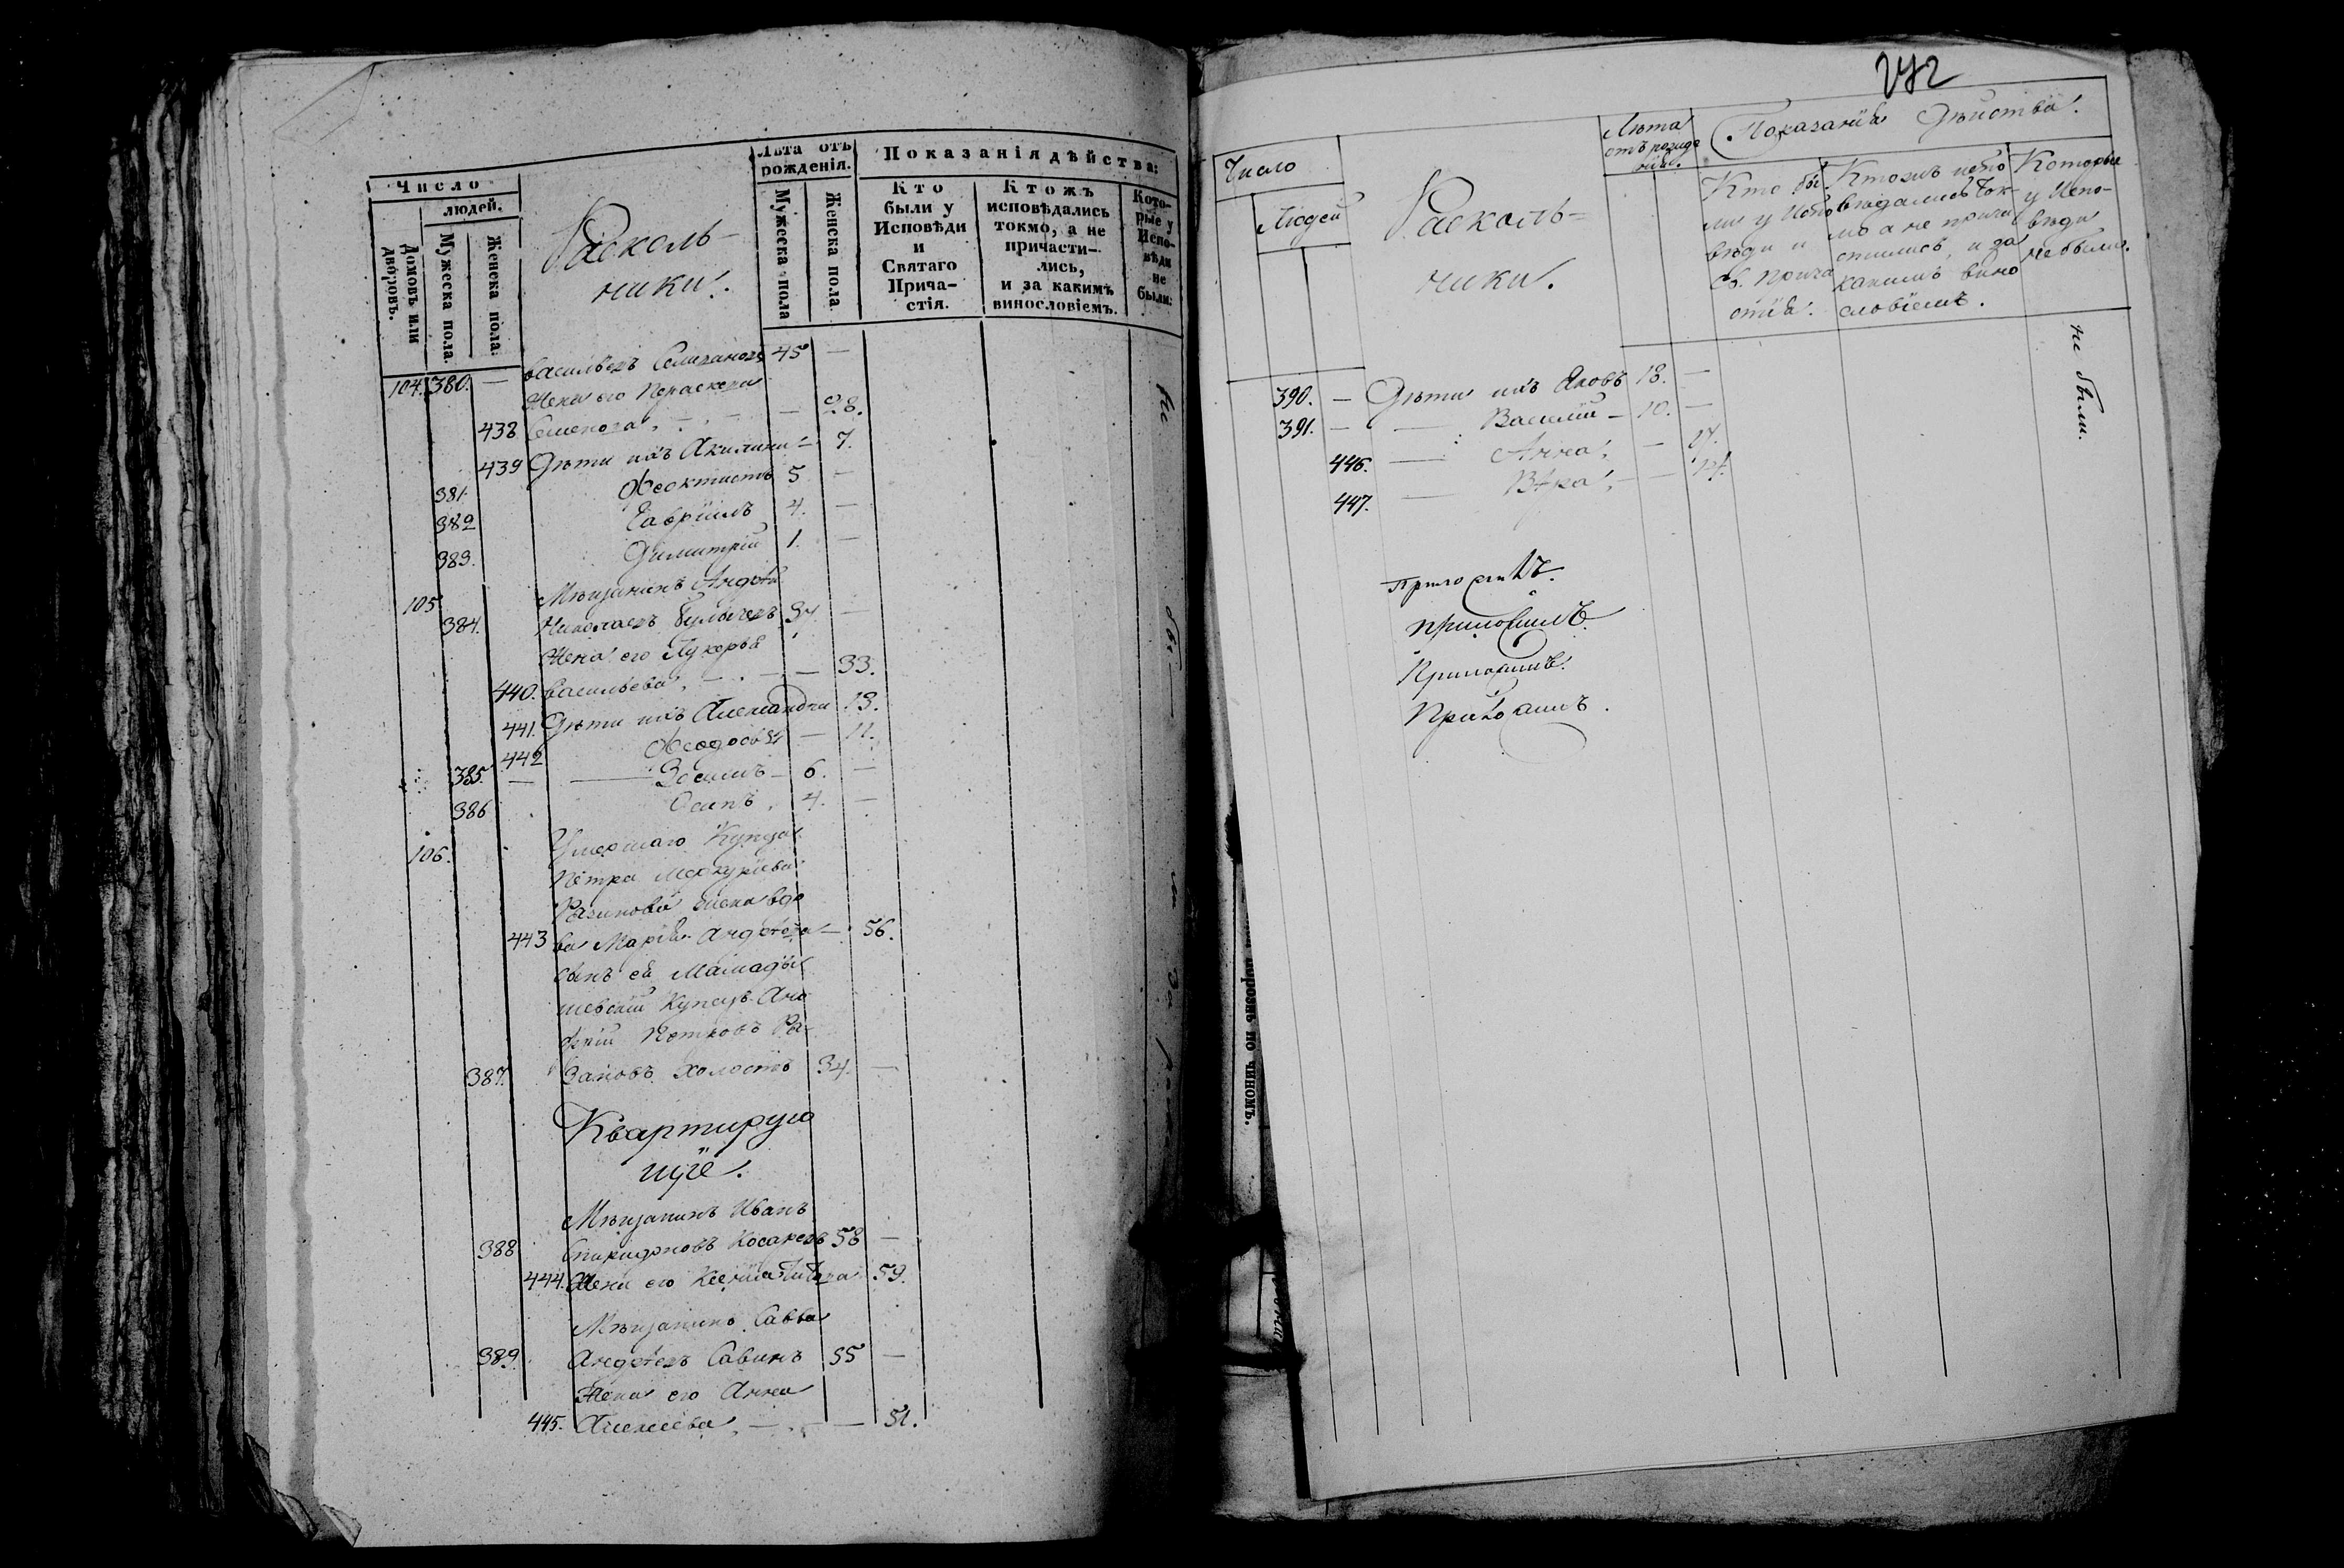 Число
людей.
Домовъ или дворовъ.
Мужеска пола.
Женска пола.
Расколь-
ники.
Лѣта отъ рожденія.
Мужеска пола
Женска пола.
Показанія дѣйства:
Кто были у Исповѣди и Святаго Прича- стія.
Ктожъ исповѣдались токмо, а не причасти- лись, и за какимъ винословіемъ.
Кото- рые у Испо- вѣди не были:
104. 380. — Васильевъ 45 —
Жена его Параскева
438 Семенова — 28.
439 Дѣти ихъ Акилина — 7.
381. Ѳеоктистъ 5 —
382 Гавріилъ 4. —
383. Димитрій 1. —
105 Мѣщанинъ Андрей
384. Николаевъ 34 —
Жена его Лукерья
440. Васильева — 33.
441. Дѣти ихъ Александра 13.
442 Ѳеодосья — 11.
385. — Зосимъ — 6. —
386 Осипъ 4. —
106. Умершаго Купца
Петра Меркурьева
жена вдо
443 ва Марія Андреева — 56.
сынъ ея Мамады
шевскій Купецъ
Петровъ
387. холостъ 34. —
Квартирую
щіе.
Мѣщанинъ Иванъ
388 Спиридоновъ Косаревъ 58 —
444. Жена его Ксенія Титова 59.
Мѣщанинъ Савва
389. Андреевъ Савинъ 55 —
Жена его Анна
445. Алексѣева — 51.
не
бы
ли за
272
Число
Людей
Расколь-
ники.
Лѣта отъ рожде нія.
Показанія дѣйства.
Кто бы ли у Испо вѣди и Св. Прича стія.
Ктожъ испо вѣдались ток мо а не прича стились, и за какимъ вино словіемъ.
Которые у Испо- вѣди не были.
390. — Дѣти ихъ Яковъ 13. —
391. — Василій — 10. —
446. Анна — 17.
447. Вѣра — 14.
не были.